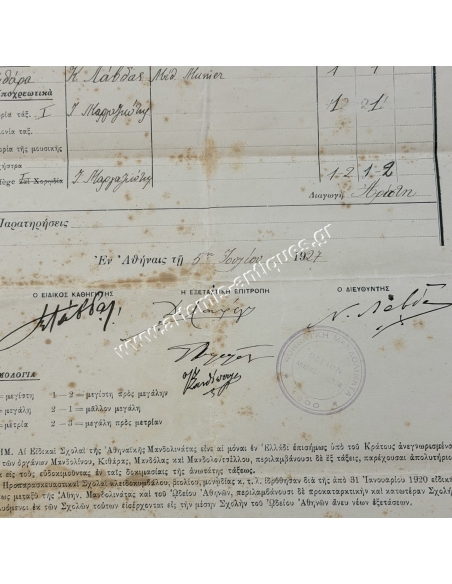 θάρα Κ Λάβδας Μέθ Munier 1 1
ποχρεωτικά
ρία τάξ. I 12 21
ονία ταξ.
ρία τῆς μουσικῆς
χήστρα
1-2 1-2
Διαγωγή Ἀρίστη
Παρατηρήσεις
Ἐν Ἀθήναις τῇ 5ῃ Ἰουνίου 1927
Ο ΕΙΔΙΚΟΣ ΚΑΘΗΓΗΤΗΣ Η ΕΞΕΤΑΣΤΙΚΗ ΕΠΙΤΡΟΠΗ Ο ΔΙΕΥΘΥΝΤΗΣ
Ν. Λάβδα
www.artemis-antiques.gr
ΜΟΛΟΓΙΑ
= μεγίστη 1—2 = μεγίστη πρὸς μεγάλην
= μεγάλη 2—1 = μᾶλλον μεγάλη
= μετρία 2—3 = μεγάλη πρὸς μετρίαν
ΙΜ. Αἱ Εἰδικαὶ Σχολαὶ τῆς Ἀθηναϊκῆς Μανδολινάτας εἶναι αἱ μόναι ἐν Ἑλλάδι ἐπισήμως ὑπὸ τοῦ Κράτους ἀνεγνωρισμένα
τῶν ὀργάνων Μανδολίνου, Κιθάρας, Μανδόλας καὶ Μανδολοντσέλλου, περιλαμβάνουσι δὲ ἓξ τάξεις, παρέχουσαι ἀπολυτήριο
εἰς τοὺς εὐδοκιμοῦντας ἐν ταῖς δοκιμασίαις τῆς ἀνωτάτης τάξεως.
Προπαρασκευαστικαὶ Σχολαὶ κλειδοκυμβάλου, βιολίου, μονῳδίας κ. τ. λ. ἱδρύθησαν διὰ τῆς ἀπὸ 31 Ἰανουαρίου 1920 εἰδικῆ
εως μεταξὺ τῆς Ἀθην. Μανδολινάτας καὶ τοῦ Ὠδείου Ἀθηνῶν, περιλαμβάνουσι δὲ προκαταρκτικὴν καὶ κατωτέραν Σχολὴ
λυόμενοι ἐκ τῶν Σχολῶν τούτων εἰσέρχονται εἰς τὴν μέσην Σχολὴν τοῦ Ὠδείου Ἀθηνῶν ἄνευ νέων ἐξετάσεων.